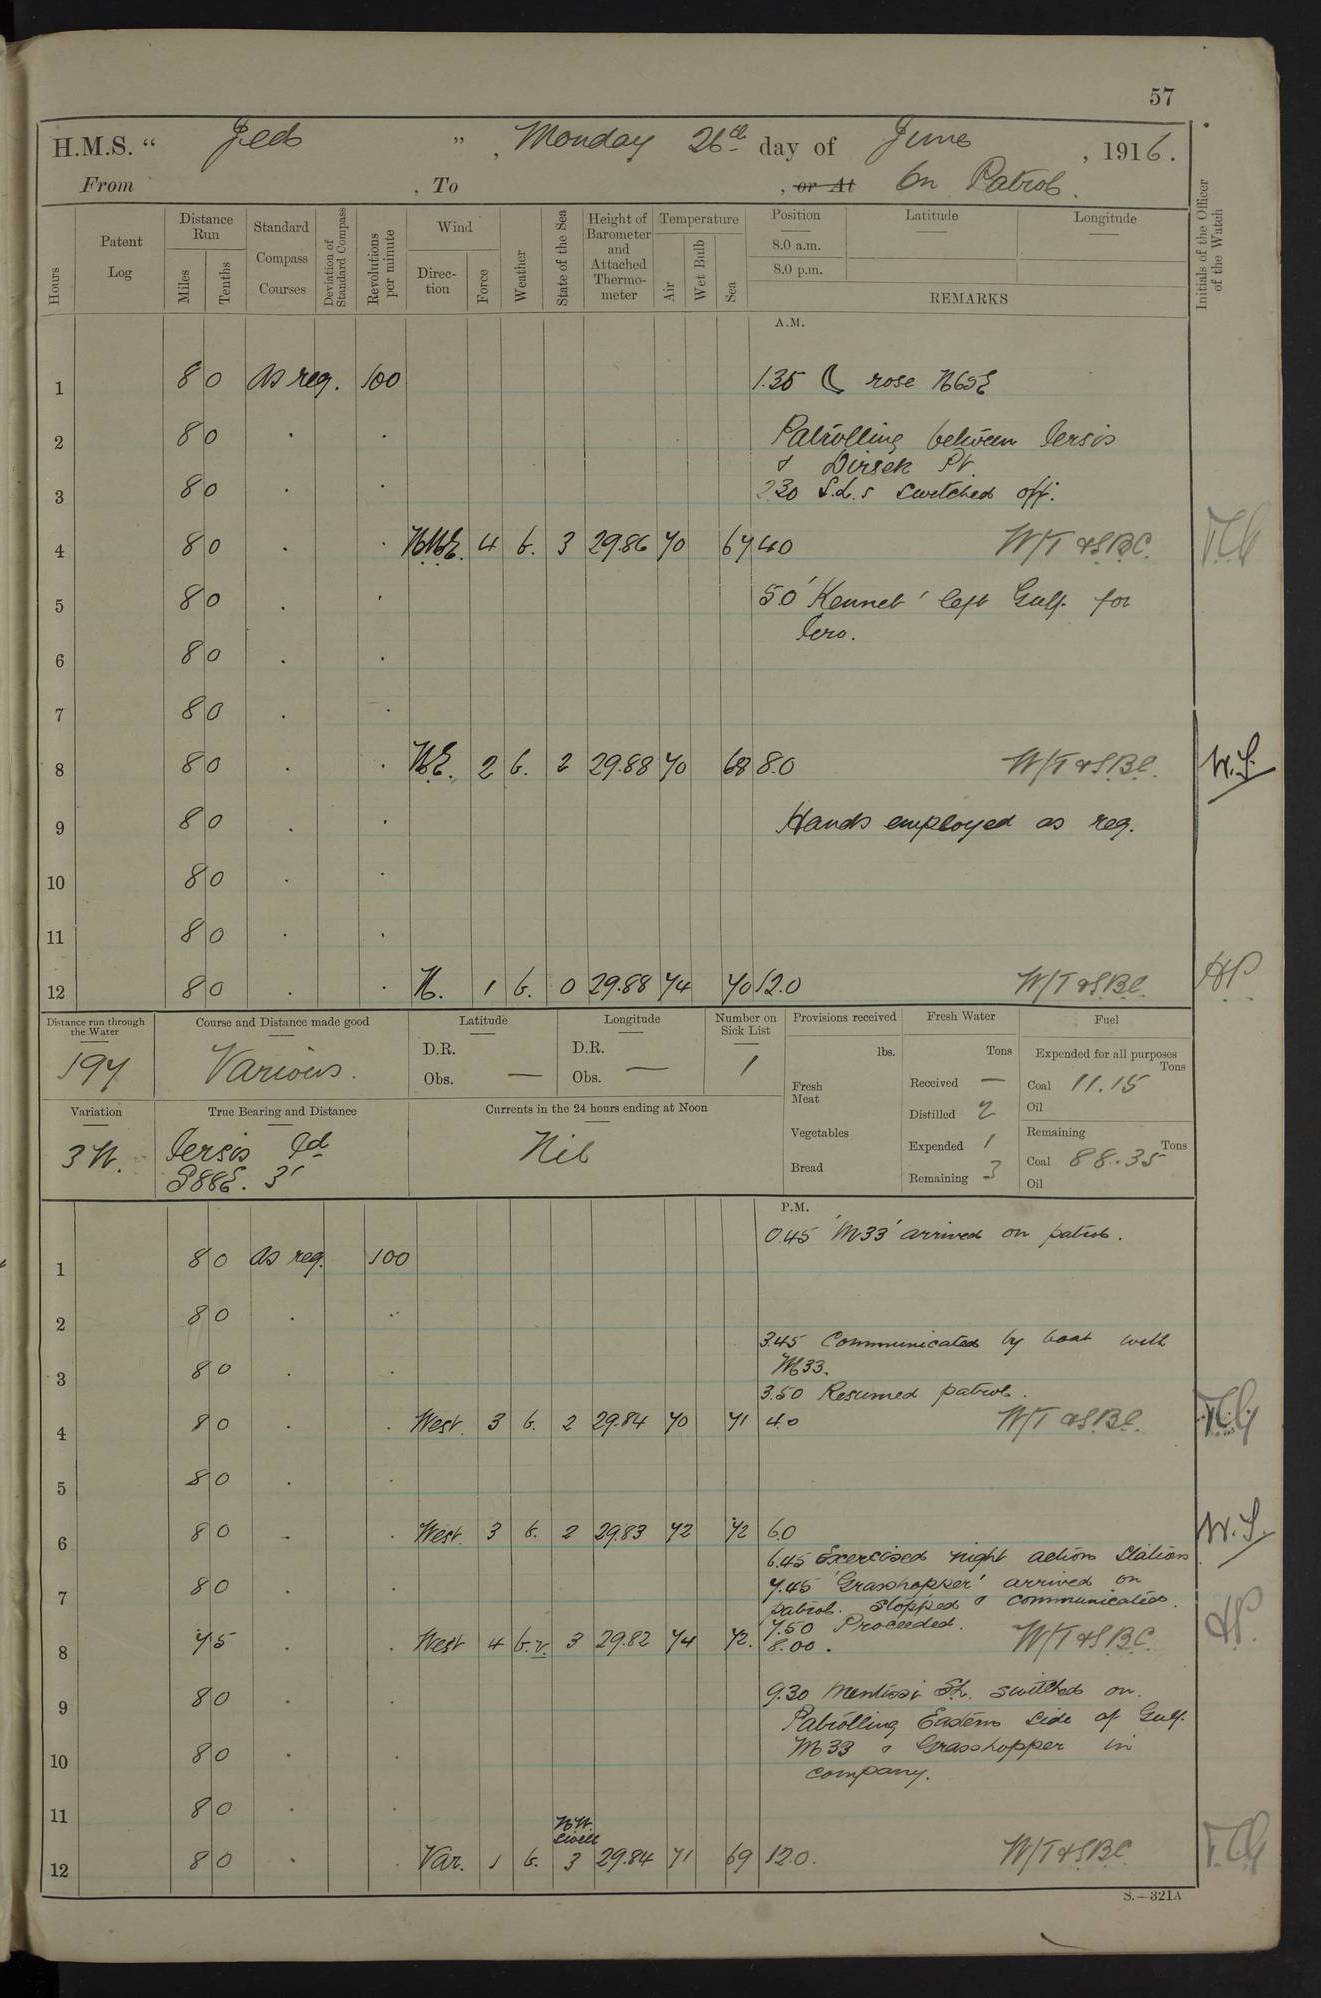 57
H.M.S. “ Jed ” , Monday 26th day of June , 1916.
From , To , or At On Patrol.
Hours
Patent Log
Distance Run
Miles
Tenths
Standard Compass Courses
Deviation of Standard Compass
Revolutions per minute
Wind
Direction
Force
Weather
State of the Sea
Height of Barometer and Attached Thermometer
Temperature
Air
Wet Bulb
Sea
Position Latitude Longitude
8.0 a.m.
8.0 p.m.
REMARKS
Initials of the Officer of the Watch
A.M.
1 8 0 As req. 100 1.35 ☾ rose N65E
2 8 0 . . Patrolling between Iersis
& Dirsek Pt.
3 8 0 . . 2.30 S.L.s switched off.
4 8 0 . . NNE. 4 b. 3 29.86 70 67 4.0 W/T & S.B.C.
5 8 0 . . 5.0 'Kennet' left Gulf for
Iero.
6 8 0 . .
7 8 0 . .
8 8 0 . . N.E. 2 b. 2 29.88 70 68 8.0 W/T & S.B.C. W.S.
9 8 0 . . Hands employed as req.
10 8 0 . .
11 8 0 . .
12 8 0 . . N. 1 b. 0 29.88 74 70 12.0 W/T & S.B.C. HP.
Distance run through the Water
197
Course and Distance made good
Various.
Latitude
D.R.
Obs. —
Longitude
D.R.
Obs. —
Number on Sick List
1
Provisions received
lbs.
Fresh Meat
Vegetables
Bread
Fresh Water
Tons
Received —
Distilled 2
Expended 1
Remaining 3
Fuel
Expended for all purposes
Tons
Coal 11.15
Oil
Remaining
Tons
Coal 88.35
Oil
Variation
3 W.
True Bearing and Distance
Iersis Id
S88E. 3'
Currents in the 24 hours ending at Noon
Nil
P.M.
0.45 'M33' arrived on patrol.
1 8 0 As req. 100
2 8 0 . .
3.45 Communicated by boat with
M33.
3 8 0 . .
3.50 Resumed patrol.
4 8 0 . . West. 3 b. 2 29.84 70 71 4.0 W/T & S.B.C.
5 8 0 . .
6 8 0 . . West. 3 b. 2 29.83 72 72 6.0 W.S.
6.45 Exercised night action stations
7 8 0 . . 7.45 'Grasshopper' arrived on
patrol. Stopped & communicated.
7.50 Proceeded.
8 7 5 . . West 4 b.v. 3 29.82 74 72. 8.00. W/T & S.B.C. HP.
9 8 0 . . 9.30 Mentissi S.L. switched on.
Patrolling Eastern side of Gulf.
10 8 0 . . M33 & Grasshopper in
company.
11 8 0 . .
NW. swell
12 8 0 . . Var. 1 b. 3 29.84 71 69 12.0. W/T & S.B.C.
S.—321A